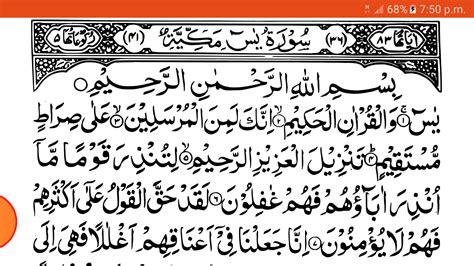 68% 7:50 p.m.
اٰیَاتُهَا ۸۳ (۳۶) سُوْرَةُ یٰسٓ مَكِّیَّةٌ (۴۱) رُكُوْعَاتُهَا ۵
بِسْمِ اللهِ الرَّحْمٰنِ الرَّحِیْمِ
یٰسٓ ۱ وَالْقُرْاٰنِ الْحَكِیْمِ ۲ اِنَّكَ لَمِنَ الْمُرْسَلِیْنَ ۳ عَلٰی صِرَاطٍ
مُّسْتَقِیْمٍ ۴ تَنْزِیْلَ الْعَزِیْزِ الرَّحِیْمِ ۵ لِتُنْذِرَ قَوْمًا مَّاۤ
اُنْذِرَ اٰبَآؤُهُمْ فَهُمْ غٰفِلُوْنَ ۶ لَقَدْ حَقَّ الْقَوْلُ عَلٰۤی اَكْثَرِهِمْ
فَهُمْ لَا یُؤْمِنُوْنَ ۷ اِنَّا جَعَلْنَا فِیْۤ اَعْنَاقِهِمْ اَغْلٰلًا فَهِیَ اِلَی